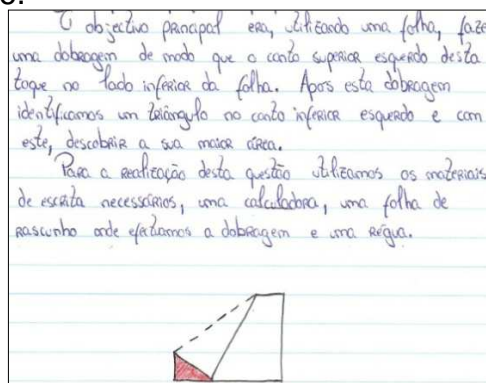 O objectivo principal era, utilizando uma folha, faze
uma dobragem de modo que o canto superior esquerdo desta
toque no lado inferior da folha. Apos esta dobragem
identificamos um triângulo no canto inferior esquerdo e com
este, descobrir a sua maior área.
Para a realização desta questão utilizamos os materiais
de escrita necessários, uma calculadora, uma folha de
rascunho onde efectuamos a dobragem e uma régua.